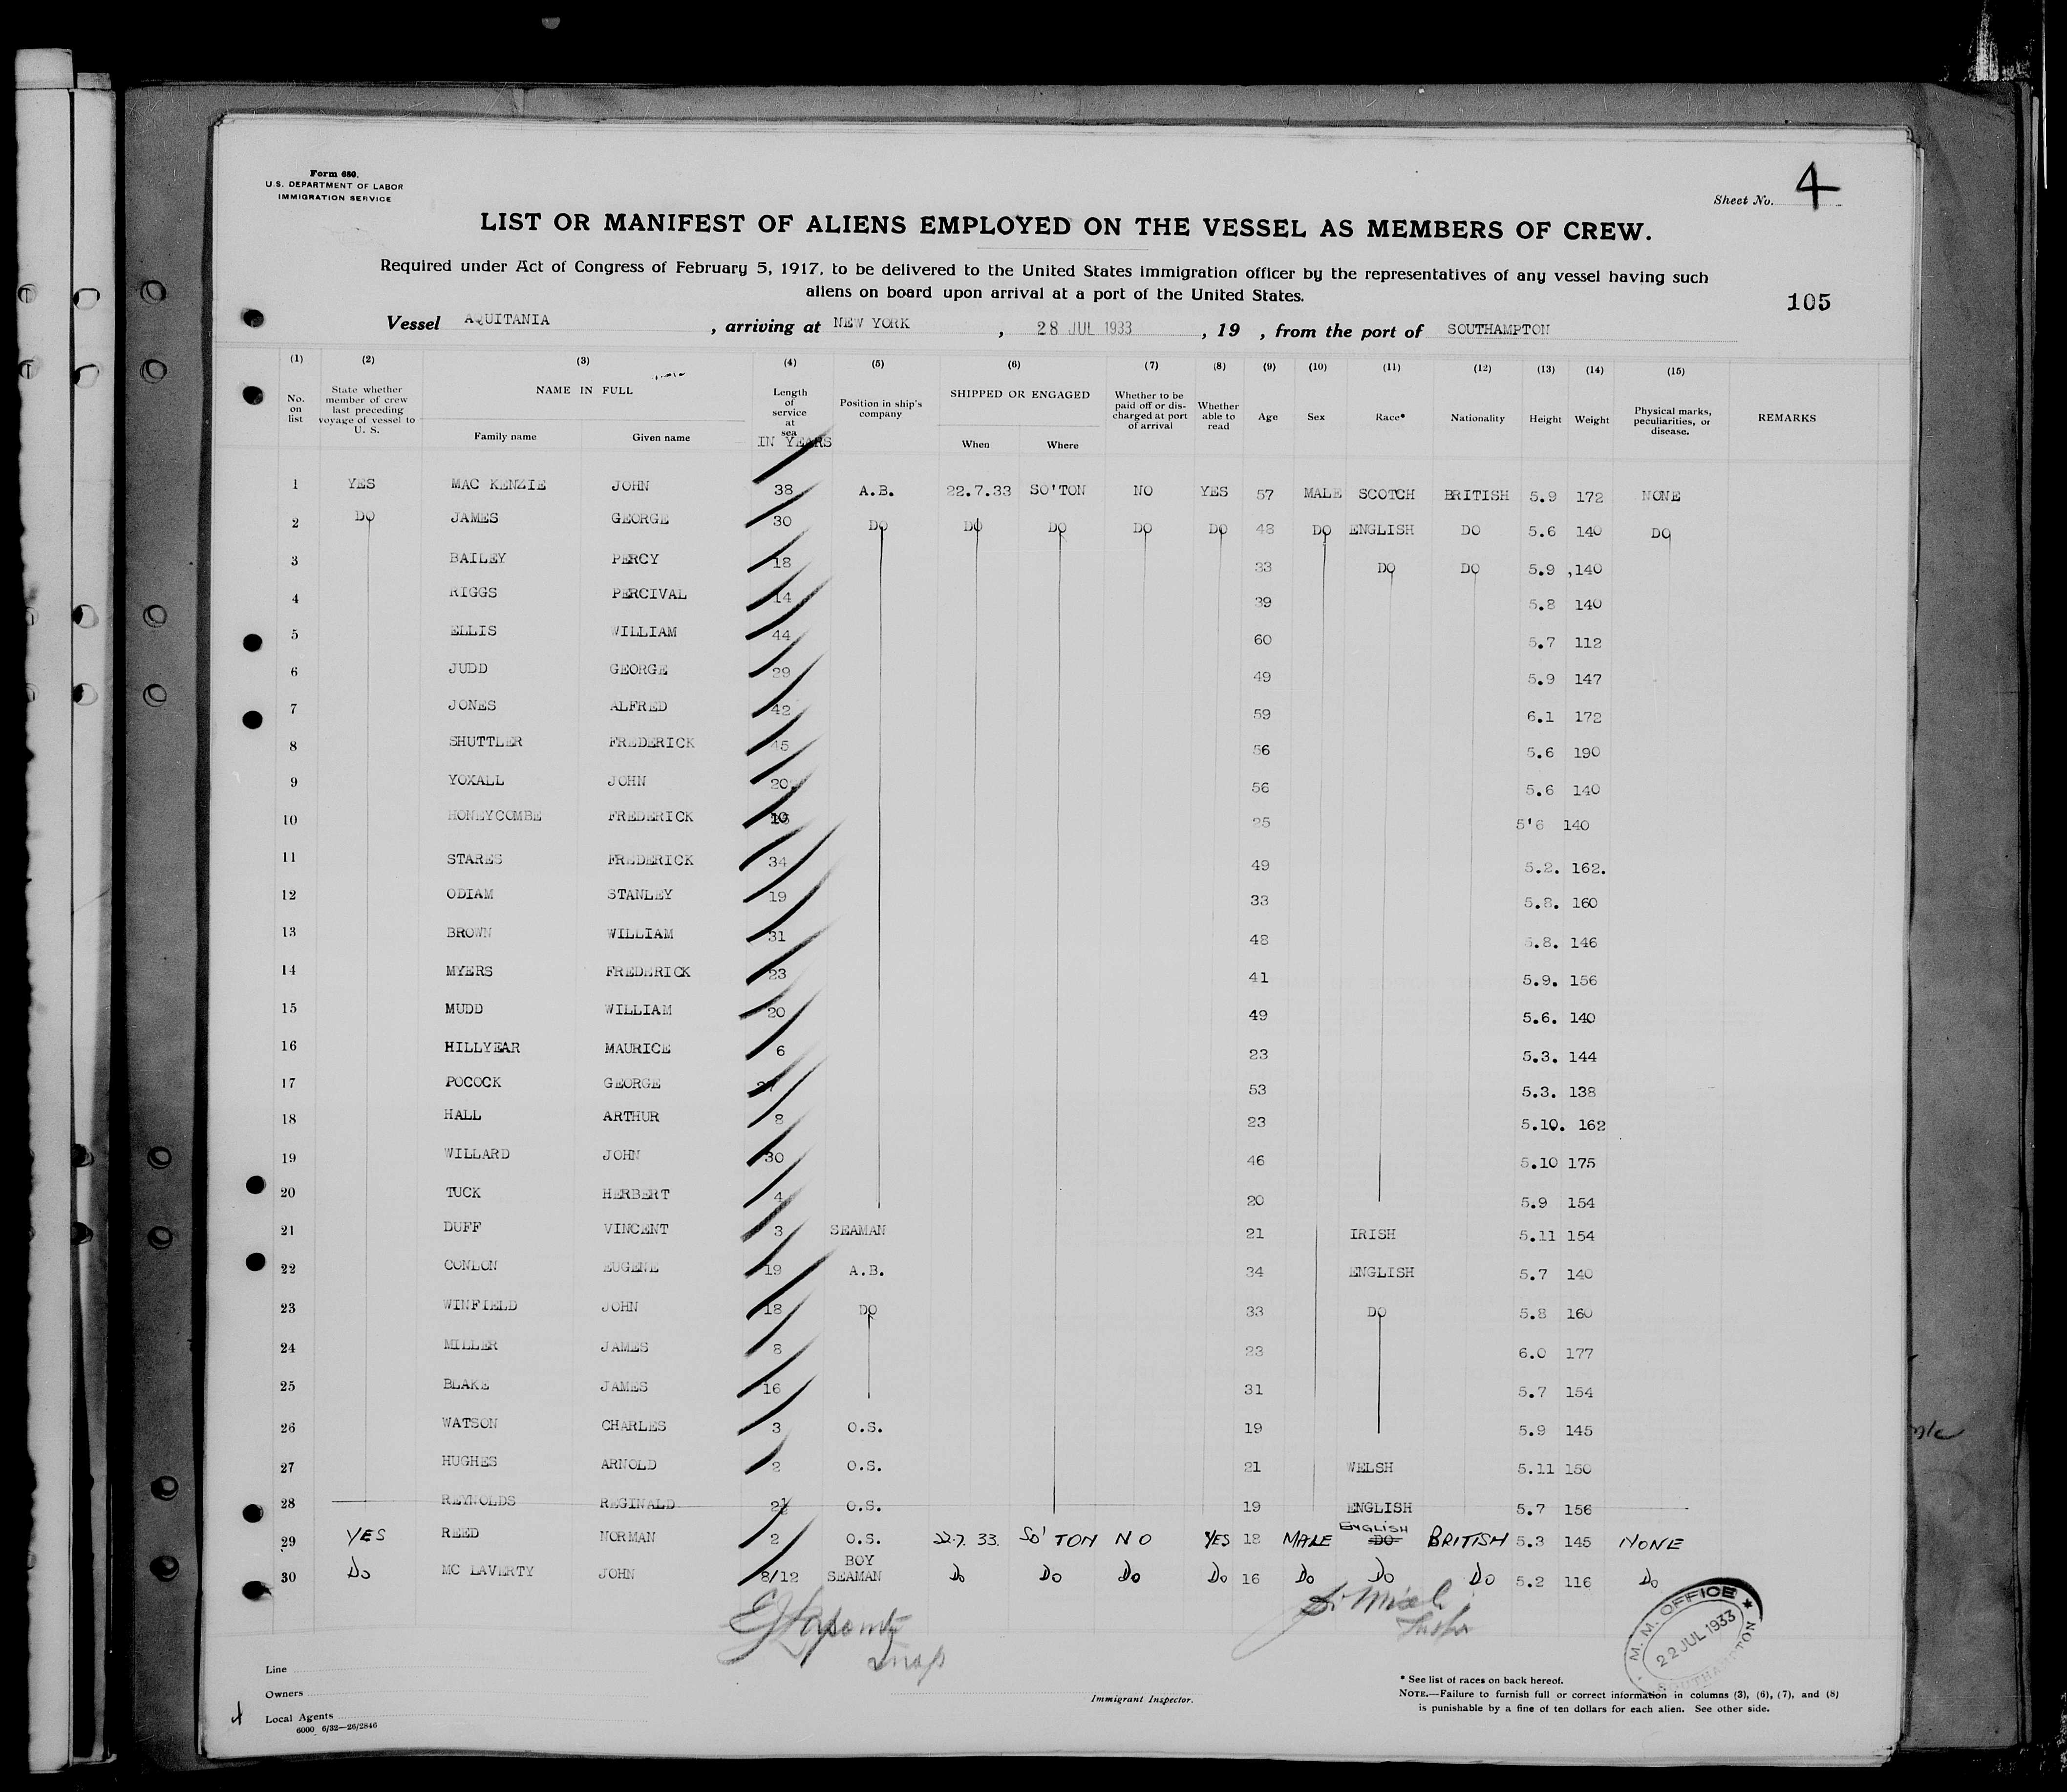 Form 680.
U.S. DEPARTMENT OF LABOR
IMMIGRATION SERVICE
Sheet No. 4
LIST OR MANIFEST OF ALIENS EMPLOYED ON THE VESSEL AS MEMBERS OF CREW.
Required under Act of Congress of February 5, 1917, to be delivered to the United States immigration officer by the representatives of any vessel having such
aliens on board upon arrival at a port of the United States.
105
Vessel AQUITANIA , arriving at NEW YORK , 28 JUL 1933 , 19 , from the port of SOUTHAMPTON
(1) (2) (3) (4) (5) (6) (7) (8) (9) (10) (11) (12) (13) (14) (15)
No. on list State whether member of crew last preceding voyage of vessel to U. S. NAME IN FULL Family name Given name Length of service at sea IN YEARS Position in ship's company SHIPPED OR ENGAGED When Where Whether to be paid off or discharged at port of arrival Whether able to read Age Sex Race* Nationality Height Weight Physical marks, peculiarities, or disease. REMARKS
1 YES MAC KENZIE JOHN 38 A.B. 22.7.33 SO'TON NO YES 57 MALE SCOTCH BRITISH 5.9 172 NONE
2 DO JAMES GEORGE 30 DO DO DO DO DO 48 DO ENGLISH DO 5.6 140 DO
3 BAILEY PERCY 18 33 DO DO 5.9 ,140
4 RIGGS PERCIVAL 14 39 5.8 140
5 ELLIS WILLIAM 44 60 5.7 112
6 JUDD GEORGE 29 49 5.9 147
7 JONES ALFRED 42 59 6.1 172
8 SHUTTLER FREDERICK 45 56 5.6 190
9 YOXALL JOHN 20 56 5.6 140
10 HONEYCOMBE FREDERICK 25 5'6 140
11 STARES FREDERICK 34 49 5.2. 162.
12 ODIAM STANLEY 19 33 5.8. 160
13 BROWN WILLIAM 31 48 5.8. 146
14 MYERS FREDERICK 23 41 5.9. 156
15 MUDD WILLIAM 20 49 5.6. 140
16 HILLYEAR MAURICE 6 23 5.3. 144
17 POCOCK GEORGE 53 5.3. 138
18 HALL ARTHUR 8 23 5.10. 162
19 WILLARD JOHN 30 46 5.10 175
20 TUCK HERBERT 4 20 5.9 154
21 DUFF VINCENT 3 SEAMAN 21 IRISH 5.11 154
22 CONLON EUGENE 19 A.B. 34 ENGLISH 5.7 140
23 WINFIELD JOHN 18 DO 33 DO 5.8 160
24 MILLER JAMES 8 23 6.0 177
25 BLAKE JAMES 16 31 5.7 154
26 WATSON CHARLES 3 O.S. 19 5.9 145
27 HUGHES ARNOLD 2 O.S. 21 WELSH 5.11 150
28 REYNOLDS REGINALD 2½ O.S. 19 ENGLISH 5.7 156
29 YES REED NORMAN 2 O.S. 22.7.33. SO'TON NO YES 18 MALE DO ENGLISH BRITISH 5.3 145 NONE
30 DO MC LAVERTY JOHN 8/12 BOY SEAMAN DO DO DO DO 16 DO DO DO 5.2 116 DO
M. M. OFFICE
22 JUL 1933
SOUTHAMPTON
Line
Owners
Local Agents
6000 6/32—26/2846
Immigrant Inspector.
* See list of races on back hereof.
NOTE.—Failure to furnish full or correct information in columns (3), (6), (7), and (8)
is punishable by a fine of ten dollars for each alien. See other side.